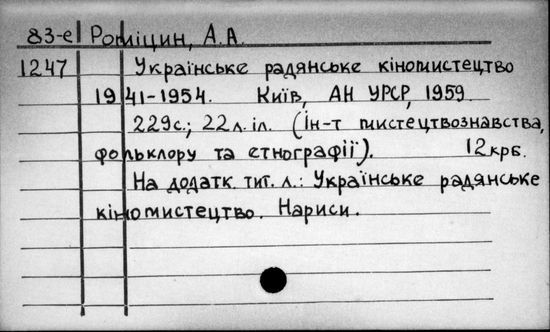 83-е Роміцин, А.А.
1247 Українське радянське кіномистецтво
1941-1954. Київ, АН УРСР, 1959.
229с.; 22л.іл. (Ін-т мистецтвознавства,
фольклору та етнографії). 12крб.
На додатк. тит. л.: Українське радянське
кіномистецтво. Нариси.